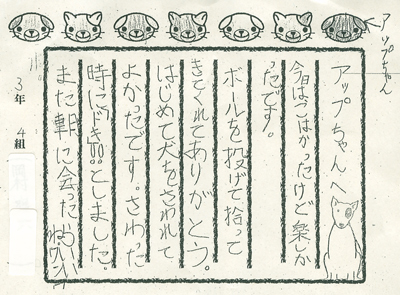 アップちゃん
アップちゃんへ
今日はこはかったけど楽しか
ったです。
ボールを投げて拾って
きてくれてありがとう。
はじめて犬をさわれて
よかったです。さわった
時に、ドキ!!!としました。
また朝に会った
3年 4組